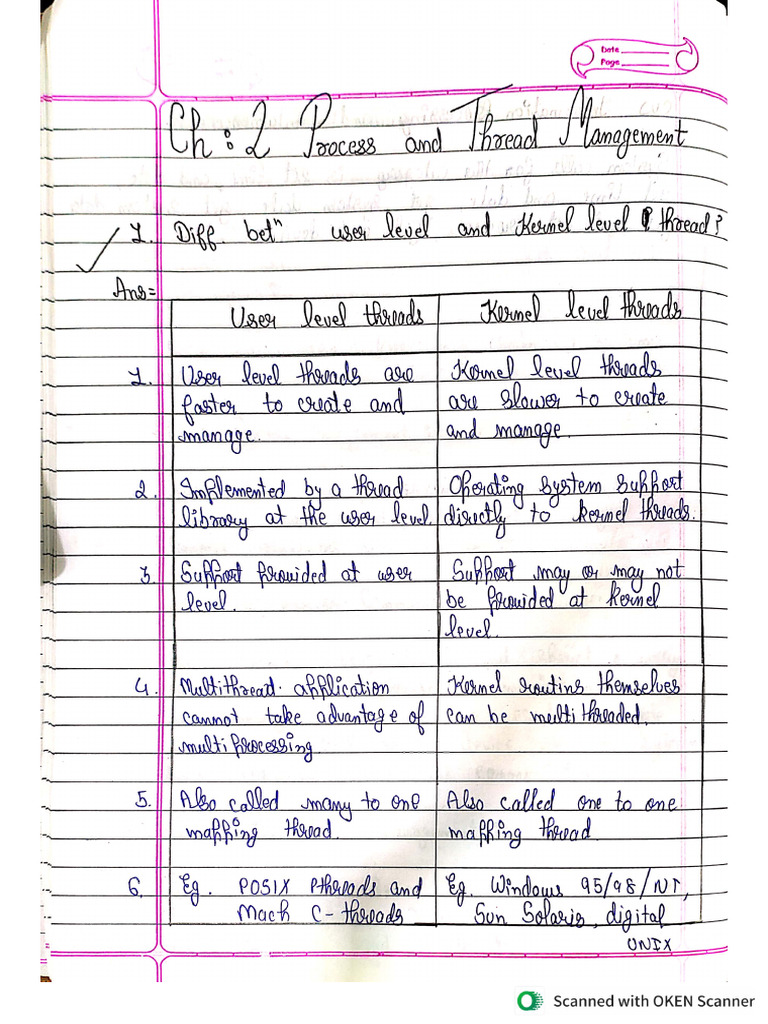 Date
Page
Ch: 2 Process and Thread Management
1. Diff. betⁿ user level and Kernel level thread?
Ans=
User level threads
Kernel level threads
1. User level threads are
faster to create and
manage.
Kernel level threads
are slower to create
and manage.
2. Implemented by a thread
library at the user level.
Operating system support
directly to kernel threads.
3. Support provided at user
level.
Support may or may not
be provided at kernel
level.
4. Multithread application
cannot take advantage of
multiprocessing.
Kernel routins themselves
can be multithreaded.
5. Also called many to one
mapping thread.
Also called one to one
mapping thread
6. Eg. POSIX Pthreads and
Mach C-threads
Eg. Windows 95/98/NT,
Sun Solaris, digital
UNIX
Scanned with OKEN Scanner